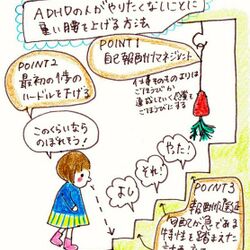 ADHDの人がやりたくないことに
重い腰を上げる方法
POINT1
自己報酬マネジメント
仕事そのものよりは
ごほうびか
達成していく感覚を
ごほうびにする
POINT2
最初の1億の
ハードルを下げる
このくらいなら
のぼれそう!
よし
それ!
やった!
POINT3
報酬遅延
勾配が急である
特性を踏まえた